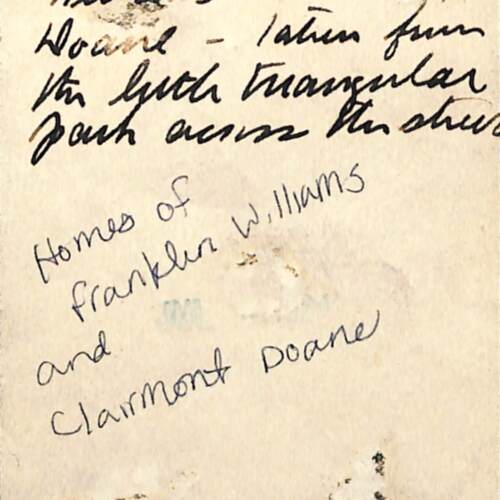 Doane - Taken from
the little triangular
park across the street
Homes of
Franklin Williams
and
Clairmont Doane